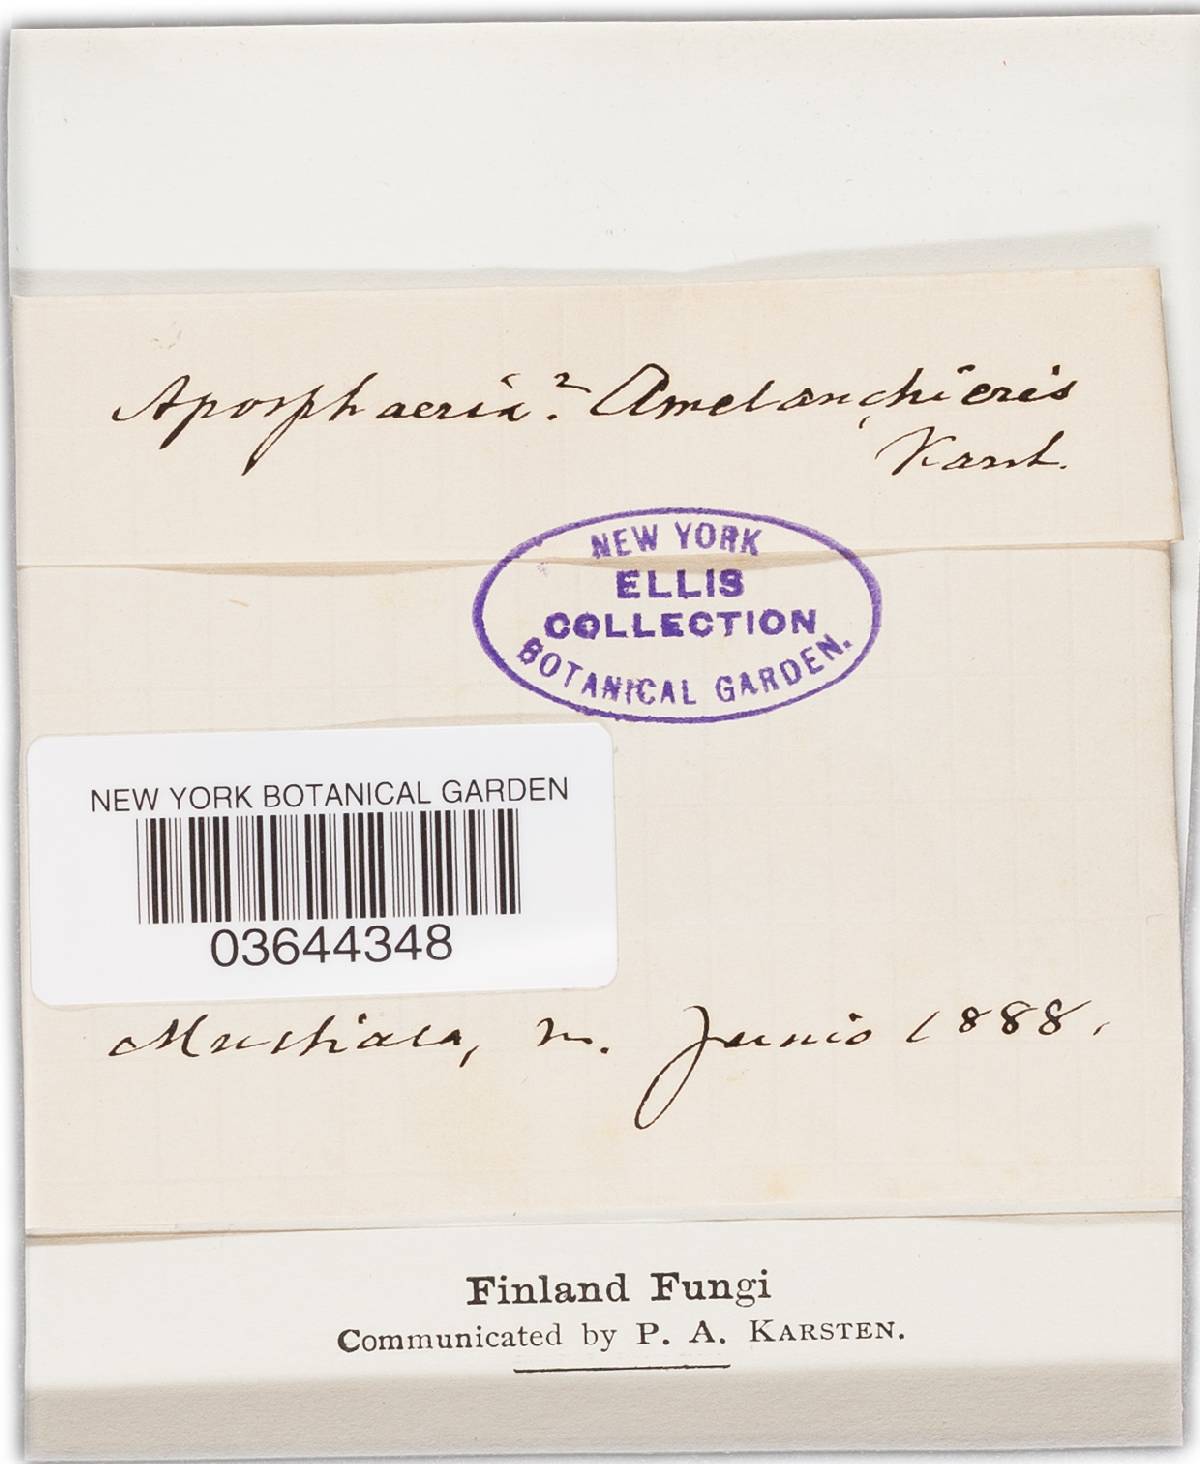 Aposphaeria? Amelanchieris
Karst.
NEW YORK
ELLIS
COLLECTION
BOTANICAL GARDEN.
NEW YORK BOTANICAL GARDEN
03644348
Mustiala, m. Junio 1888.
Finland Fungi
Communicated by P. A. KARSTEN.